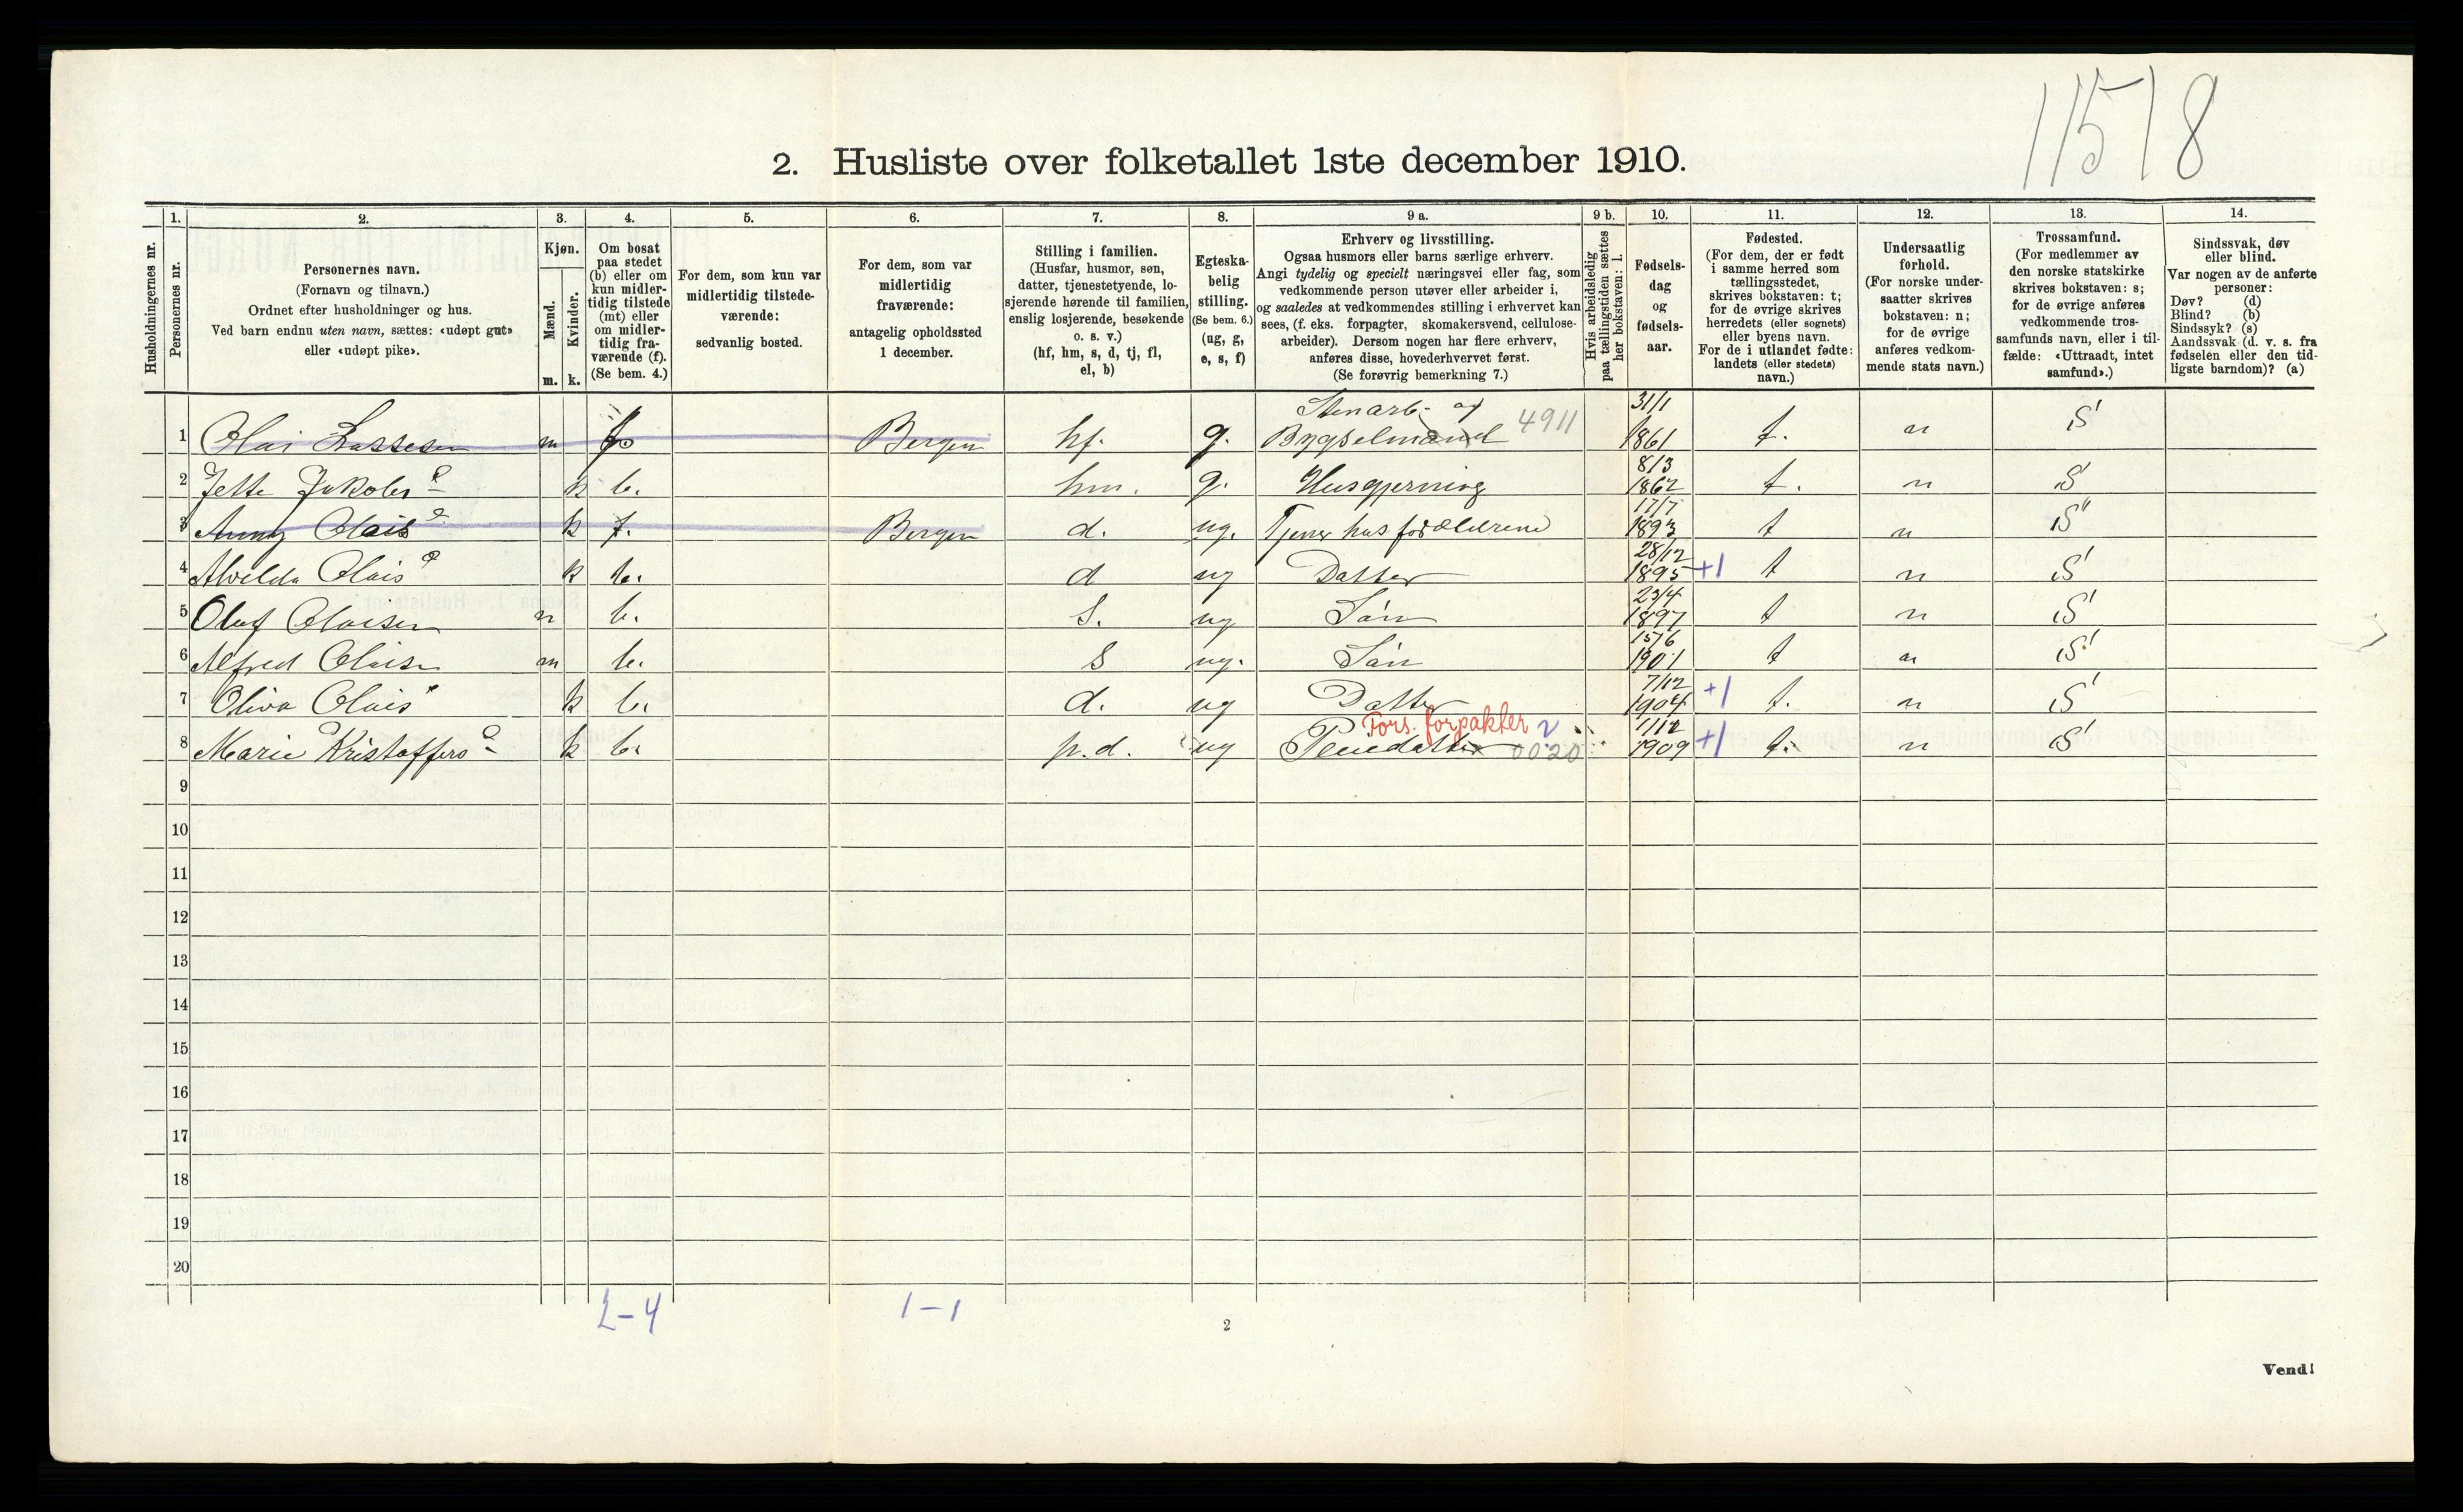 11518
2. Husliste over folketallet 1ste december 1910.
1. 2. 3. 4. 5. 6. 7. 8. 9 a. 9 b. 10. 11. 12. 13. 14.
Husholdningernes nr.
Personernes nr.
Personernes navn.
(Fornavn og tilnavn.)
Ordnet efter husholdninger og hus.
Ved barn endnu uten navn, sættes: «udøpt gut»
eller «udøpt pike».
Kjøn.
Mænd.
Kvinder.
m. k.
Om bosat
paa stedet
(b) eller om
kun midler-
tidig tilstede
(mt) eller
om midler-
tidig fra-
værende (f).
(Se bem. 4.)
For dem, som kun var
midlertidig tilstede-
værende:
sedvanlig bosted.
For dem, som var
midlertidig
fraværende:
antagelig opholdssted
1 december.
Stilling i familien.
(Husfar, husmor, søn,
datter, tjenestetyende, lo-
sjerende hørende til familien,
enslig losjerende, besøkende
o. s. v.)
(hf, hm, s, d, tj, fl,
el, b)
Egteska-
belig
stilling.
(Se bem. 6.)
(ug, g,
e, s, f)
Erhverv og livsstilling.
Ogsaa husmors eller barns særlige erhverv.
Angi tydelig og specielt næringsvei eller fag, som
vedkommende person utøver eller arbeider i,
og saaledes at vedkommendes stilling i erhvervet kan
sees, (f. eks. forpagter, skomakersvend, cellulose-
arbeider). Dersom nogen har flere erhverv,
anføres disse, hovederhvervet først.
(Se forøvrig bemerkning 7.)
Hvis arbeidsledig
paa tællingstiden sættes
her bokstaven: l.
Fødsels-
dag
og
fødsels-
aar.
Fødested.
(For dem, der er født
i samme herred som
tællingsstedet,
skrives bokstaven: t;
for de øvrige skrives
herredets (eller sognets)
eller byens navn.
For de i utlandet fødte:
landets (eller stedets)
navn.)
Undersaatlig
forhold.
(For norske under-
saatter skrives
bokstaven: n;
for de øvrige
anføres vedkom-
mende stats navn.)
Trossamfund.
(For medlemmer av
den norske statskirke
skrives bokstaven: s;
for de øvrige anføres
vedkommende tros-
samfunds navn, eller i til-
fælde: «Uttraadt, intet
samfund».)
Sindssvak, døv
eller blind.
Var nogen av de anførte
personer:
Døv? (d)
Blind? (b)
Sindssyk? (s)
Aandssvak (d. v. s. fra
fødselen eller den tid-
ligste barndom)? (a)
Stenarb. og 4911 31/1
1 Olai Lassesen m f Bergen hf. g. Bygselmand 1861 t. n S
8/3
2 Jette Jakobs k b. hm. g. Husgjerning 1862 t. n S
17/7
3 Anny Olais k f. Bergen d. ug. Tjener hos forældrene 1893 t n S
28/12
4 Alvelda Olais k b. d ug Datter 1895 +1 t n S
23/4
5 Olaf Olaisen m b. S. ug Søn 1897 t n S
15/6
6 Alfred Olaisn m b. S ug. Søn 1901 t n S
7/12
7 Oliva Olais k b. d. ug Datter 1904 +1 t. n S
Fors. forpakter 2 1/12
8 Marie Kristoffers k b. p.d. ug Pleiedatter 0020 1909 +1 t. n S
9
10
11
12
13
14
15
16
17
18
19
20
2-4 1-1
2
Vend!